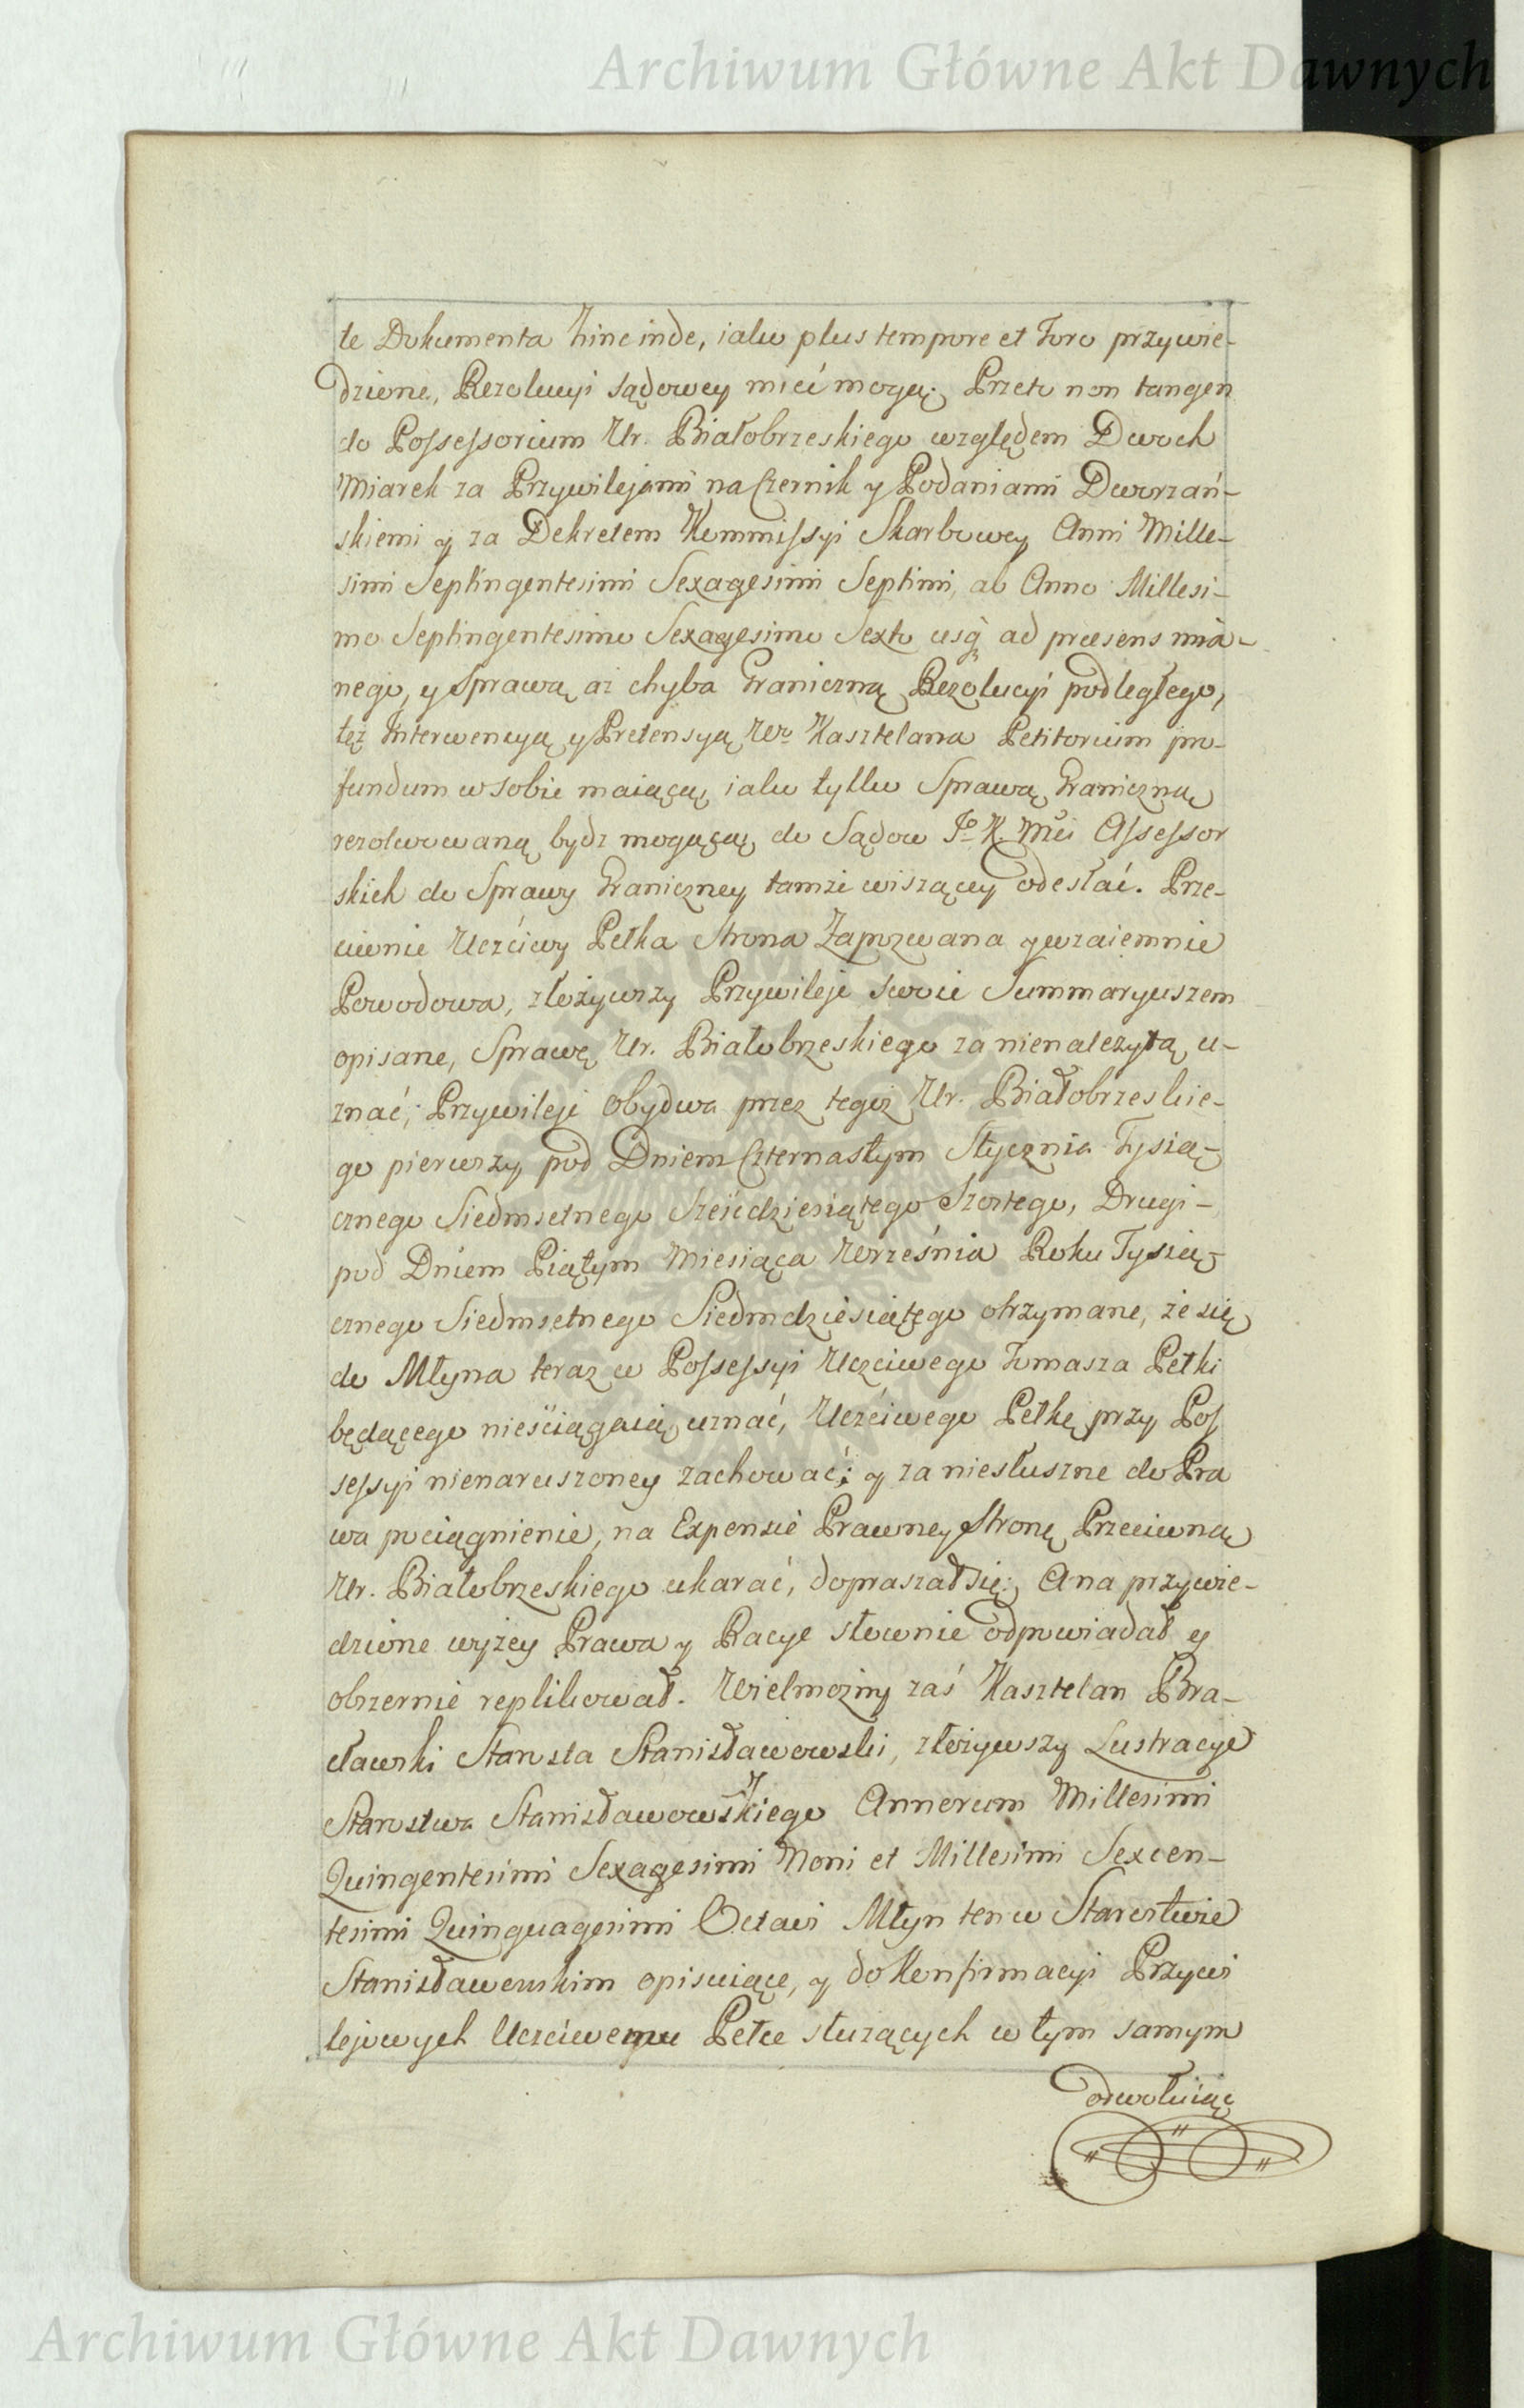 Archiwum Główne Akt Dawnych
te Dokumenta hinc inde, iako plus tempore et Foro przywie-
dzione, Rezolucyi sądowey mieć mogą; Przeto non tangen
do Possessorium Ur. Białobrzeskiego względem Dwoch
Miarek za Przywilejami na Czernik y Podaniami Dworzań-
skiemi y za Dekretem Kommissyi Skarbowey Anni Mille-
simi Septingentesimi Sexagesimi Septimi, ab Anno Millesi-
mo Septingentesimo Sexagesimo Sexto usq ad præsens mia-
nego, y Sprawą aż chyba Graniczną Rezolucyi podległego,
tęż Interwencyą y Pretensyą Wo Kasztelana Petitorium pro-
fundum w sobie maiącą, iako tylko Sprawą Graniczną
rezolwowaną bydz mogącą, do Sądow Jo K. Mci Assessor
skich do Sprawy Graniczney tamże wiszącey odesłać. Prze-
ciwnie Uczciwy Pełka Strona Zapozwana y wzaiemnie
Powodowa, złożywszy Przywileje swoie Summaryuszem
opisane, Sprawę Ur. Białobrzeskiego za nienależytą u-
znać; Przywileje obydwa przez tegoż Ur. Białobrzeskie-
go pierwszy pod Dniem Czternastym Stycznia Tysią-
cznego Siedmsetnego Sześćdziesiątego Szostego, Drugi-
pod Dniem Piątym Miesiąca Września Roku Tysią-
cznego Siedmsetnego Siedmdziesiątego otrzymane, że się
do Młyna teraz w Possessyi Uczciwego Tomasza Pełki
będącego nieściągaią uznać, Uczciwego Pełkę przy Pos
sessyi nienaruszoney zachować; y za niesłuszne do Pra
wa pociągnienie, na Expensie Prawney Stronę Przeciwną
Ur. Białobrzeskiego ukarać, dopraszał się; A na przywie-
dzione wyżey Prawa y Racye słownie odpowiadał y
obszernie replikował. Wielmożny zaś Kasztelan Bra-
cławski Starosta Stanisławowski, złożywszy Lustracye
Starostwa Stanisławowskiego Annorum Millesimi
Quingentesimi Sexagesimi Noni et Millesimi Sexcen-
tesimi Quinquagesimi Octavi Młyn ten w Starostwie
Stanisławowskim opisuiące, y do Konfirmacyi Przywi
lejowych Uczciwemu Pełce służących w tym samym
odwołuiąc
Archiwum Główne Akt Dawnych